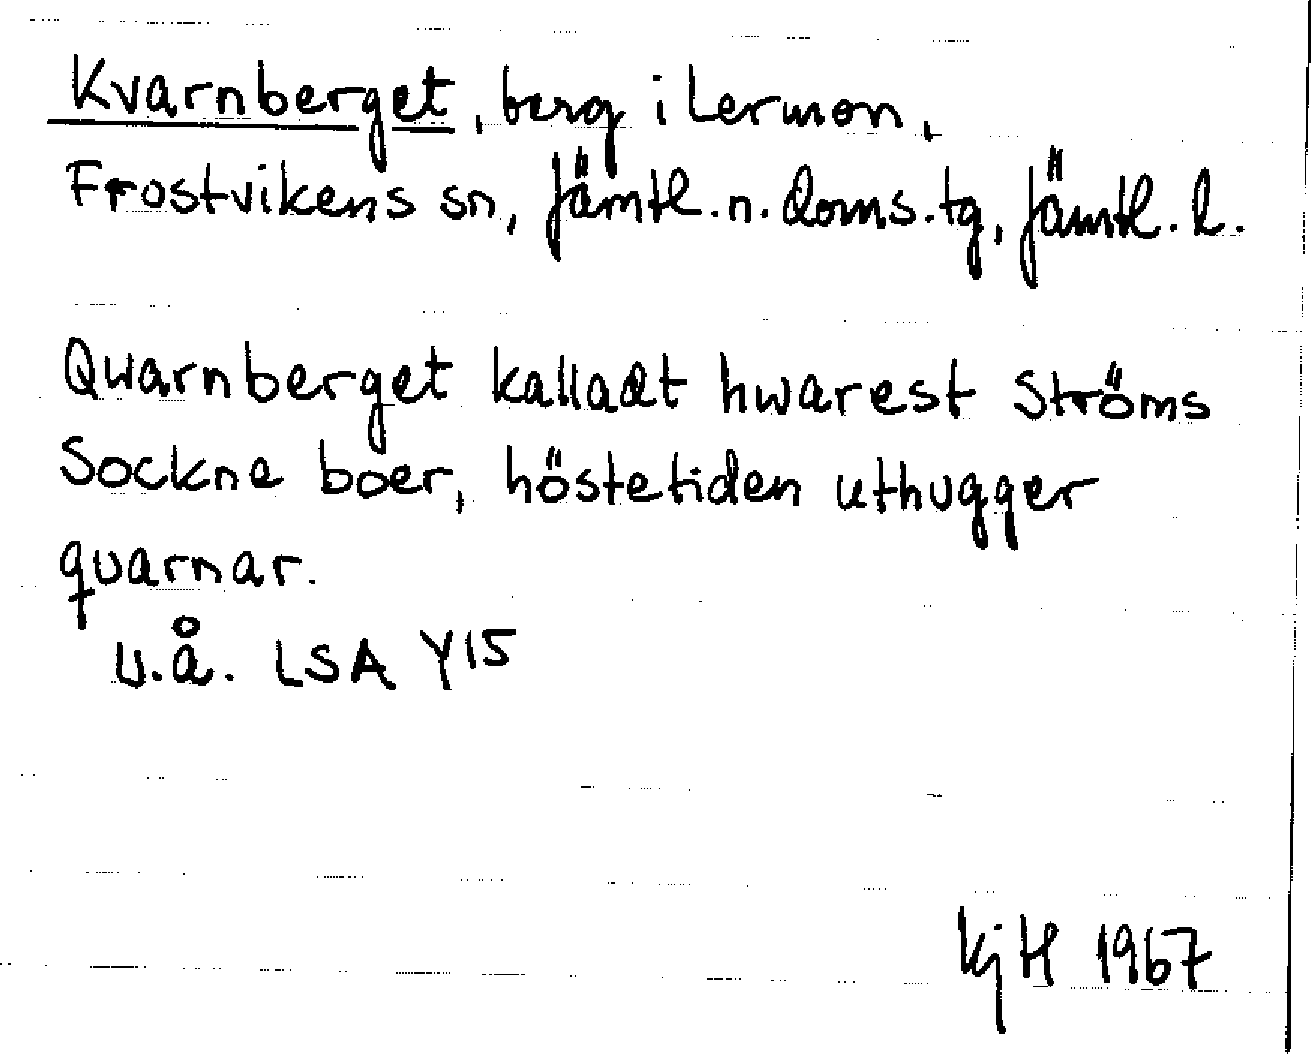 Kvarnberget, berg i Lermon,
Frostvikens sn, Jämtl. n. doms. tg, Jämtl. l.
Qwarnberget kalladt hwarest Ströms
Sockne boer, höstetiden uthugger
quarnar.
U.å. LSA Y15
KjH 1967